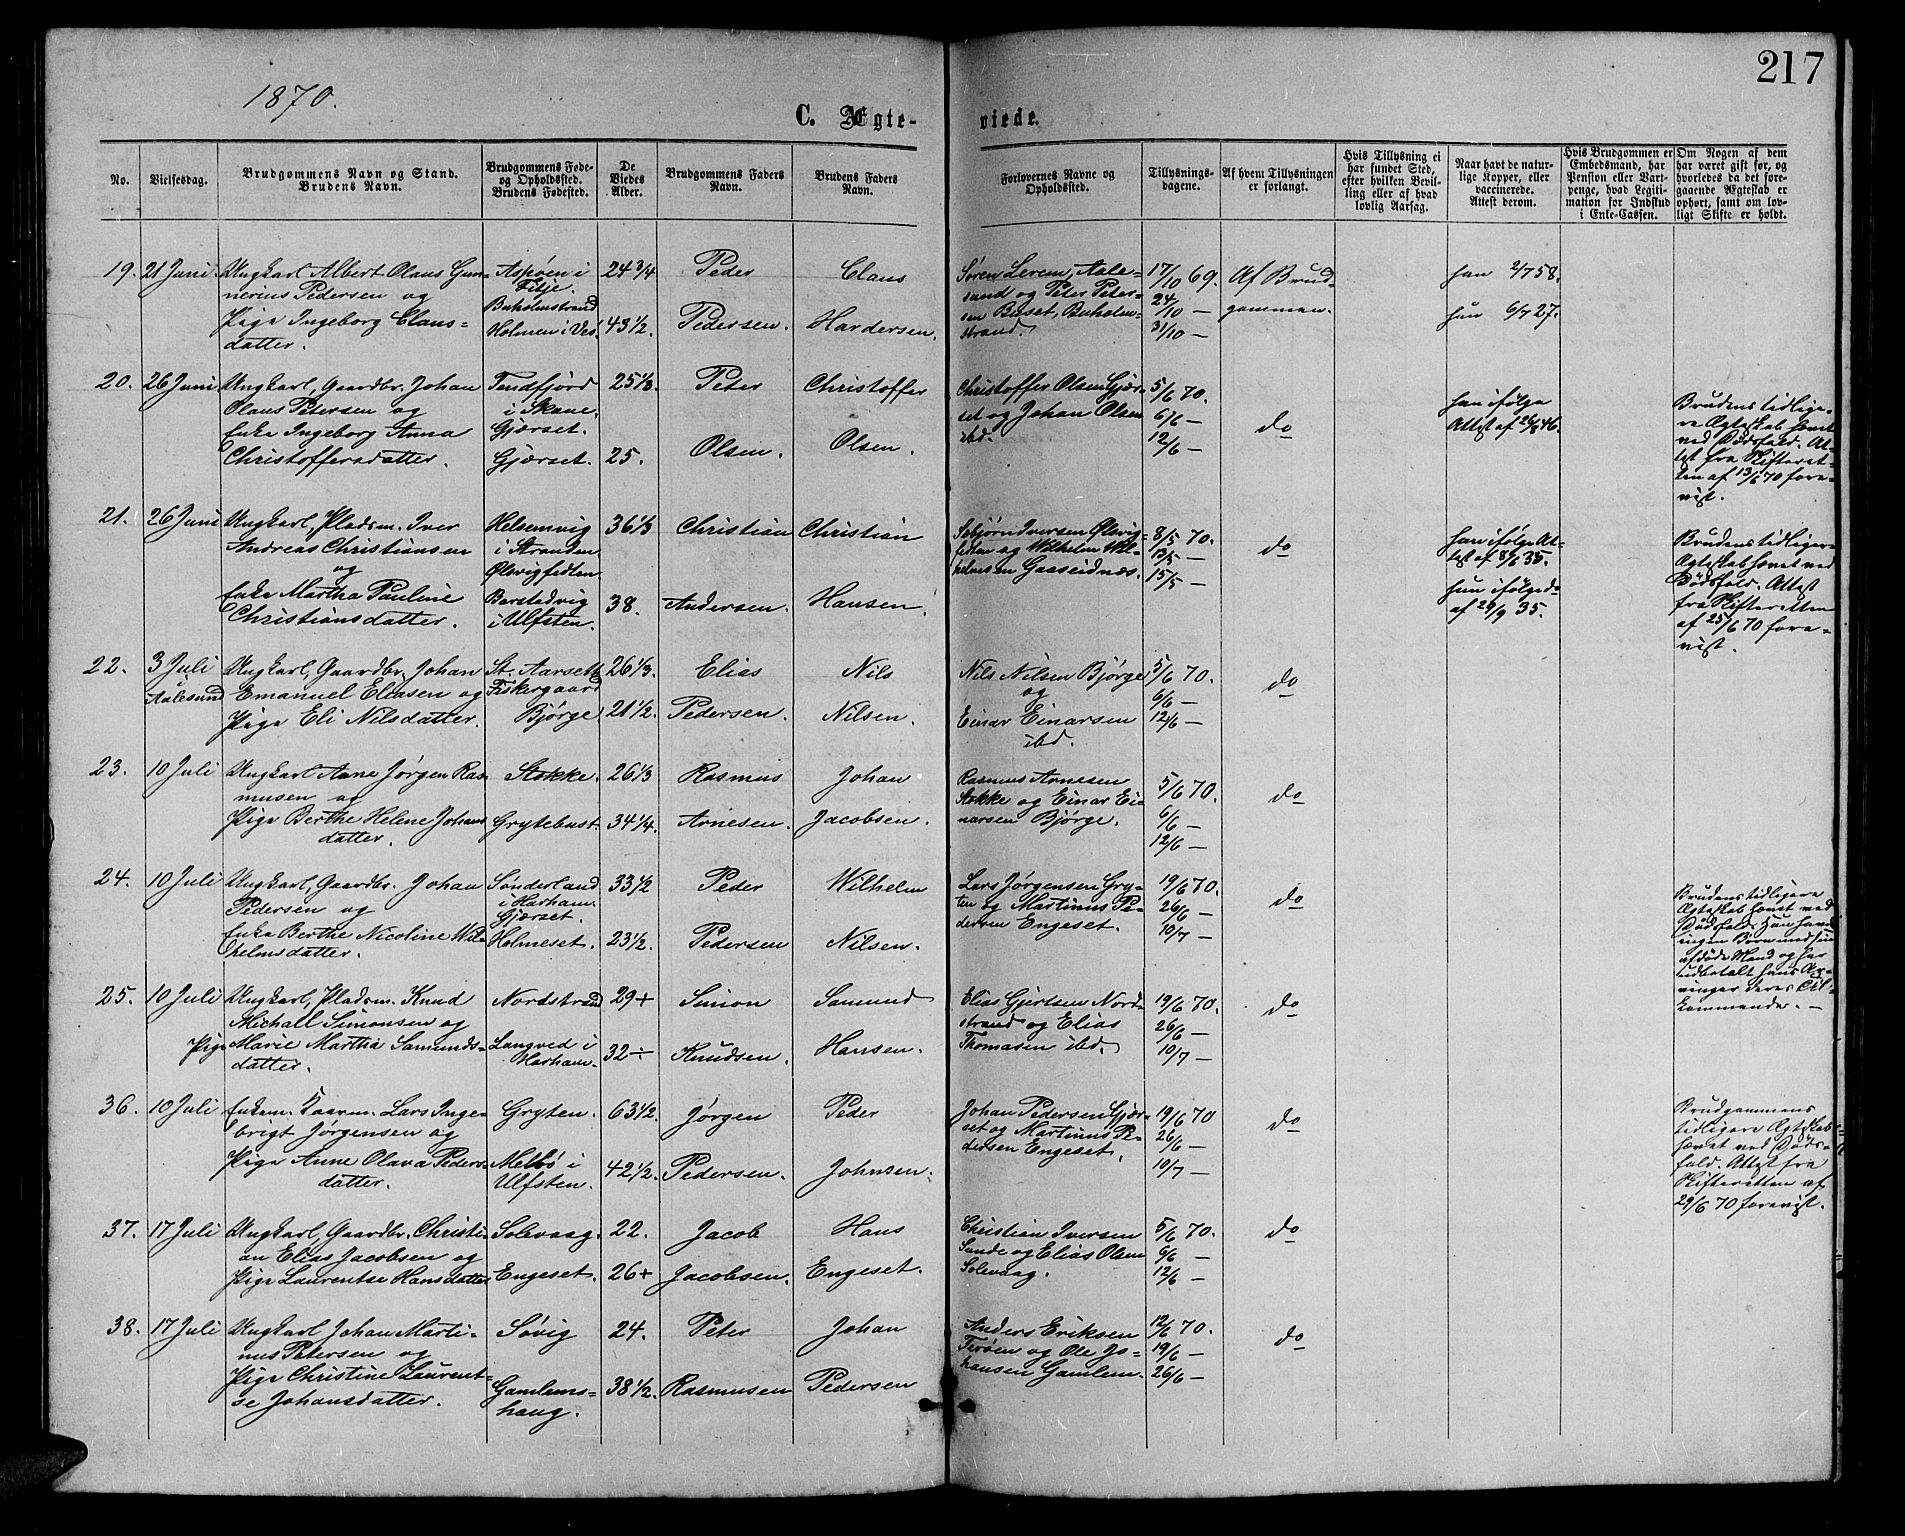 217
1870.
C. Ægte-
viede.
No.
Vielsesdag.
Brudgommens Navn og Stand.
Brudens Navn.
Brudgommens Føde-
og Opholdssted.
Brudens Fødested.
De
Viedes
Alder.
Brudgommens Faders
Navn.
Brudens Faders
Navn.
Forlovernes Navne og
Opholdssted.
Tillysnings-
dagene.
Af hvem Tillysningen
er forlangt.
Hvis Tillysning ei
har fundet Sted,
efter hvilken Bevil-
ling eller af hvad
lovlig Aarsag.
Naar havt de natur-
lige Kopper, eller
vaccinerede.
Attest derom.
Hvis Brudgommen er
Embedsmand, har
Pension eller Vart-
penge, hvad Legiti-
mation for Indskud
i Enke-Cassen.
Om Nogen af dem
har været gift før, og
hvorledes da det fore-
gaaende Ægteskab er
ophørt, samt om lov-
ligt Skifte er holdt.
19. 21 Juni.
Ungkarl Albert Olaus Gun-
nerius Pedersen og
Pige Ingeborg Claus-
datter.
Aspøen i
Filje.
Buholmstrand
Holmen i Ves.
24 3/4
43 1/2.
Peder
Pedersen.
Claus
Hardersen.
Søren Lerem, Aale-
sund og Peter Peter-
sen Buset, Buholm-
strand.
17/10 69.
24/10 —
31/10 —
Af Brud-
gommen.
han 2/7 58.
hun 6/7 27.
20. 26 Juni
Ungkarl, Gaardbr. Johan
Olaus Petersen og
Enke Ingeborg Anna
Christoffersdatter.
Tendfjord
i Skane.
Gjærset.
Gjærset.
25 1/3.
25.
Peter
Olsen.
Christoffer
Olsen.
Christoffer Olsen Gjær-
set og Johan Olsen
ibd.
5/6 70.
6/6 —
12/6 —
do
han ifølge
Attest af 26/8 46.
Brudens tidlige-
re Ægteskab hævet
ved Dødsfald. At-
test fra Skifteret-
ten af 13/6 70 fore-
vist.
21. 26 Juni
Ungkarl, Pladsm. Iver
Andreas Christiansen
og
Enke Martha Pauline
Christiansdatter.
Helsemvig
i Stranden
Ølevigfedten
Borstadvig
i Ulfsten.
36 1/3
38.
Christian
Andersen.
Christian
Hansen.
Sebjørn Iversen Ølevig-
fedten og Wilhelm Wil-
helmsen Gaaseidnæs.
8/5 70.
13/5 —
15/5 —
do
han ifølge At-
test af 8/6 35.
hun ifølge d-
af 29/9 35.
Brudens tidligere
Ægteskab hævet ved
Dødsfald. Attest
fra Skifteretten
af 25/6 70 fore-
vist.
22. 3 Juli
i
Aalesund
Ungkarl, Gaardbr. Johan
Emanuel Eliasen og
Pige Eli Nilsdatter.
St. Aarseth
Fiskergaard
Bjørge.
26 1/3.
21 1/2.
Elias
Pedersen.
Nils
Nilsen.
Nils Nilsen Bjørge
og
Einar Einarsen
ibd.
5/6 70.
6/6 —
12/6 —
do
23. 10 Juli
Ungkarl Arne Jørgen Ras-
musen og
Pige Berthe Helene Johans
datter.
Stokke.
Grytebust.
26 1/3
34 1/4.
Rasmus
Arnesen.
Johan
Jacobsen.
Rasmus Arnesen
Stokke og Einar Ei-
narsen Bjørge.
5/6 70.
6/6 —
12/6 —
do
24. 10 Juli
Ungkarl, Gaardbr. Johan
Pedersen og
Enke Berthe Nicoline Wil-
helmsdatter.
Sønderland
i Harham
Gjærset.
Holmeset.
33 1/2
23 1/2.
Peder
Pedersen
Wilhelm
Nilsen.
Lars Jørgensen Gry-
ten og Martinus Pe-
dersen Engeset.
19/6 70.
26/6 —
10/7 —
do
Brudens tidligere
Ægteskab hævet ved
Dødsfald. Hun havde
ingen Børn med sin
afdøde Mand og har
udbetalt hans Ar-
vinger deres Til-
kommende. —
25. 10 Juli
Ungkarl, Pladsm. Knud
Michall Simonsen og
Pige Marie Martha Samunds-
datter.
Nordstrand
Longved i
Harham.
29 +
32 ÷
Simon
Knudsen.
Samund
Hansen.
Elias Gjertsen Nord-
strand og Elias
Thomasen ibd.
19/6 70.
26/6 —
10/7 —
do
36. 10 Juli
Enkem. Kaarm. Lars Inge-
brigt Jørgensen og
Pige Anne Olava Peders-
datter.
Gryten.
Melbø i
Ulfsten.
63 1/2.
42 1/2.
Jørgen
Pedersen.
Peder
Johnsen.
Johan Pedersen Gjær-
set og Martinus Pe-
dersen Engeset.
19/6 70
26/6 —
10/7 —
do
Brudgommens
tidligere Ægteskab
hævet ved Døds-
fald. Attest fra
Skifteretten af
29/6 70 forevist.
37. 17 Juli
Ungkarl, Gaardbr. Christi-
an Elias Jacobsen og
Pige Laurentse Hansdatter
Solevaag.
Engeset.
22.
26 +
Jacob
Jacobsen.
Hans
Engeset.
Christian Iversen
Sunde og Elias Olsen
Solevaag.
5/6 70.
6/6 —
12/6 —
do
38. 17 Juli
Ungkarl Johan Marti-
nus Petersen og
Pige Christine Laurent-
se Johansdatter.
Søvig
Gamlems-
haug.
24.
38 1/2.
Peter
Rasmusen
Johan
Pedersen
Anders Eriksen
Terøen og Ole Jo-
hansen Gamlem.
12/6 70.
19/6 —
26/6 —
do